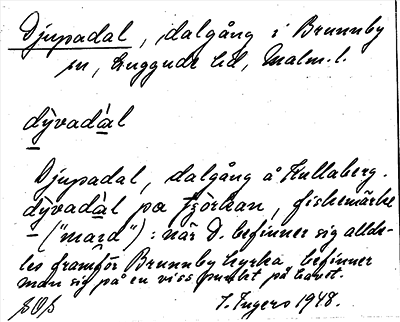 Djupadal, dalgång i Brunnby
sn, Luggude hd, Malm.l.
dỳvadàl
Djupadal, dalgång å Kullaberg.
dỳvadàl på fjörkan, fiskemärke
– ("mara"): när D. befinner sig allde-
les framför Brunnby kyrka, befinner
man sig på en viss punkt på havet.
I. Ingers 1948.